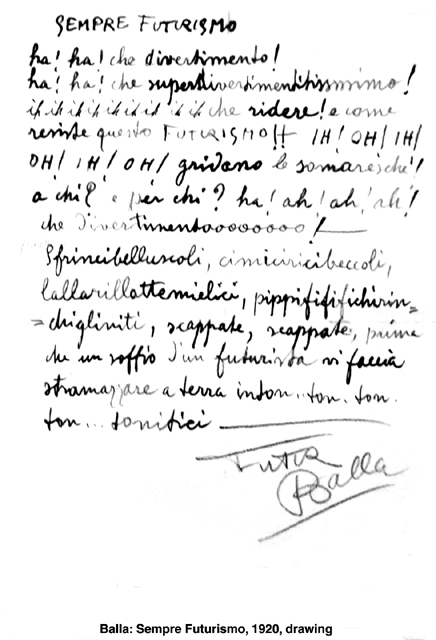 SEMPRE FUTURISMO
ha! ha! che divertimento!
ha! ha! che superdivertimentitissmimo!
ih ih ih ih ih ih ih ih che ridere! e come
resiste questo FUTURISMO!! IH! OH! IH!
OH! IH! OH! gridano le somare; chè!
a chi? e per chi? ha! ah! ah! ah!
che divertimentoooooooo!
Sfrincibelluscoli, cimiciricibeccoli,
lallarillattemielici, pippifififichirin=
=chigliniti, scappate, scappate, prima
che un soffio d'un futurista vi faccia
stramazzare a terra inton..ton.ton.
ton... tonitici
FUTUR
Balla
Balla: Sempre Futurismo, 1920, drawing